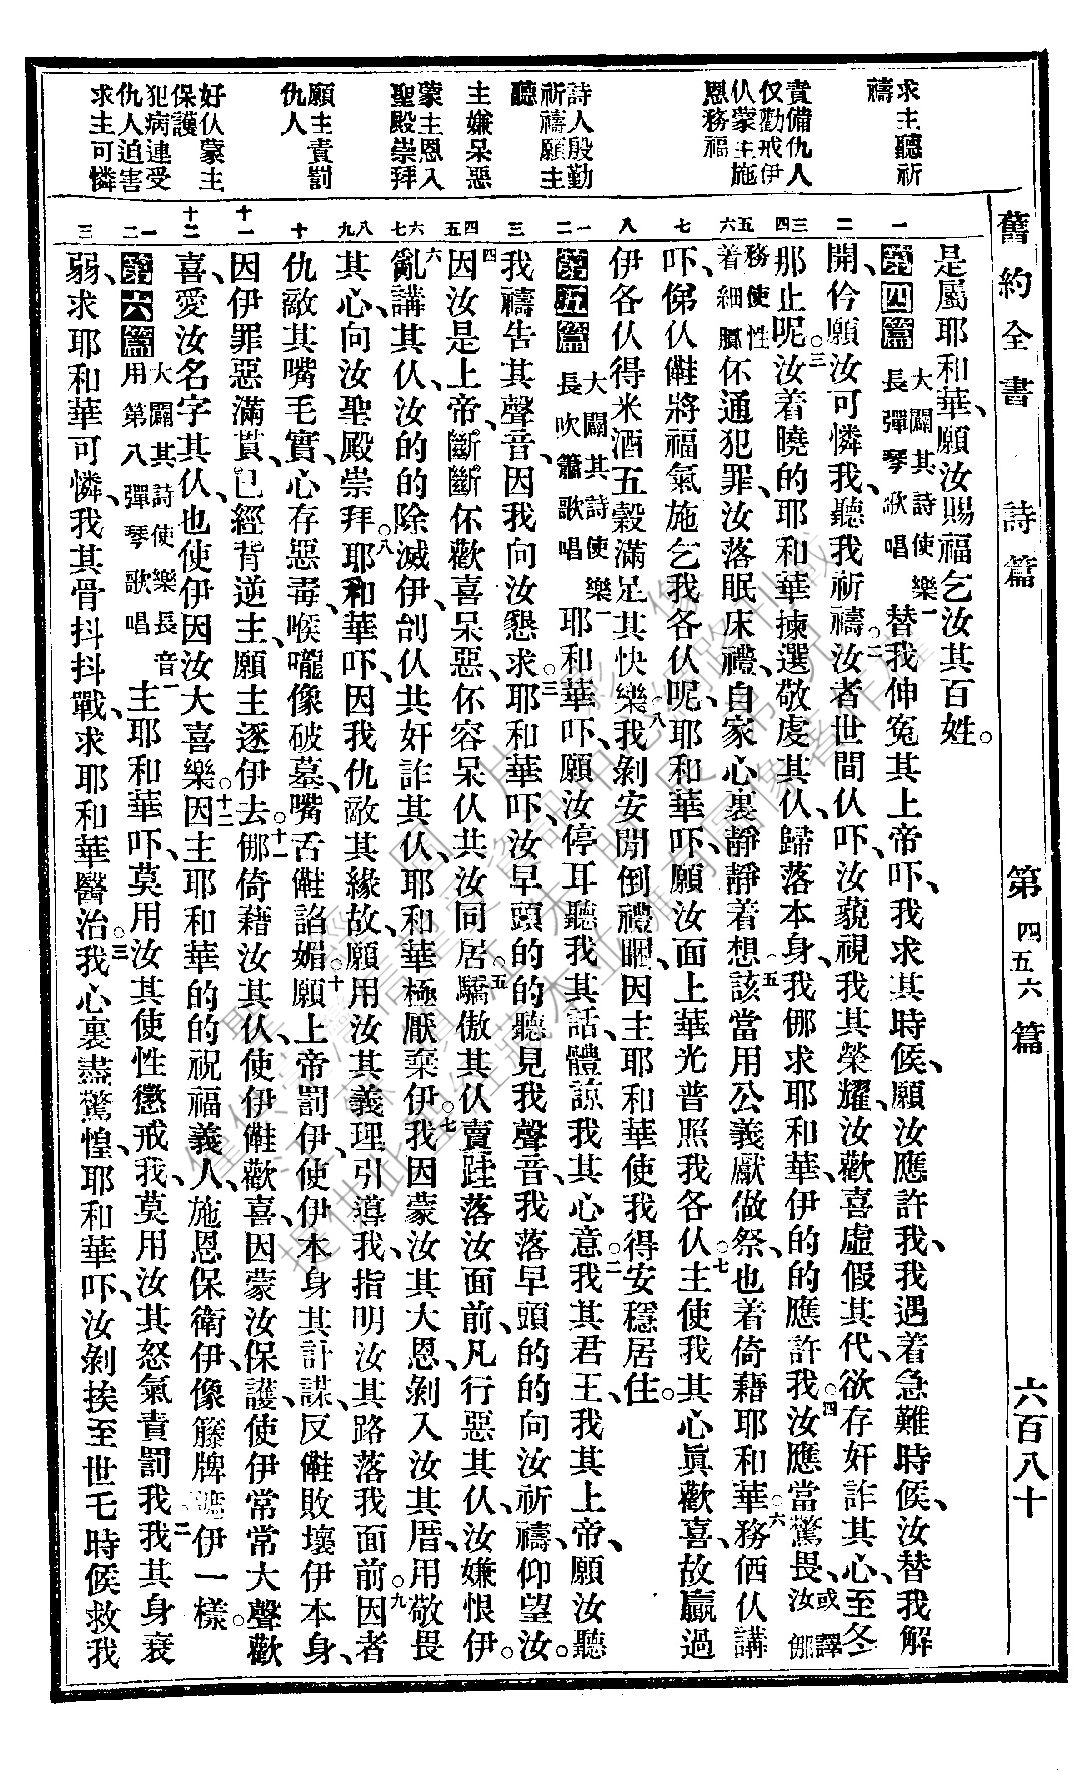 舊約全書 詩篇 第四五六篇 六百八十
求主聽祈
禱
責備仇人
仅勸戒伊
仅蒙主施
恩務福
詩人殷勤
祈禱願主
聽
主嫌呆惡
蒙主恩入
聖殿崇拜
願主責罰
仇人
好仅蒙主
保護
犯病連受
仇人迫害
求主可憐
一 二 三 四 五 六 七 八 一 二 三 四 五 六 七 八 九 十 十一 十二 一 二 三
是屬耶和華、願汝賜福乞汝其百姓。
第四篇 大闢其詩使樂長彈琴歌唱 一替我伸冤其上帝吓、我求其時候、願汝應許我、我遇着急難時候、汝替我解
開、仱願汝可憐我、聽我祈禱。二汝者世間仅吓、汝藐視我其榮耀、汝歡喜虛假其代、欲存奸詐其心、至冬
那止呢。三汝着曉的耶和華揀選敬虔其仅、歸落本身、我㑚求耶和華、伊的的應許我。四汝應當驚畏、或譯汝㑚
務使性着細膩伓通犯罪、汝落眠床禮、自家心裏靜靜着想。五該當用公義獻做祭、也着倚藉耶和華。六務価仅講
吓、俤仅㒁將福氣施乞我各仅呢、耶和華吓、願汝面上華光普照我各仅。七主使我其心眞歡喜、故贏過
伊各仅得米酒五穀滿足其快樂。八我剝安閒倒禮睏、因主耶和華使我得安穩居住。
第五篇 大闢其詩使樂長吹簫歌唱 一耶和華吓、願汝停耳聽我其話、體諒我其心意。二我其君王、我其上帝、願汝聽
我禱告其聲音、因我向汝懇求。三耶和華吓、汝早頭的的聽見我聲音、我落早頭的的向汝祈禱、仰望汝。
四因汝是上帝、斷斷伓歡喜呆惡、伓容呆仅共汝同居。五驕傲其仅賣跬落汝面前、凡行惡其仅、汝嫌恨伊。
六亂講其仅、汝的的除滅伊、刣仅共奸詐其仅、耶和華極厭棄伊。七我因蒙汝其大恩、剝入汝其厝、用敬畏
其心、向汝聖殿崇拜。八耶和華吓、因我仇敵其緣故、願用汝其義理引導我、指明汝其路落我面前。九因者
仇敵其嘴毛實、心存惡毒、喉嚨像破墓、嘴舌㒁諂媚。十願上帝罰伊、使伊本身其計謀、反㒁敗壞伊本身、
因伊罪惡滿貫、已經背逆主、願主逐伊去。十一㑚倚藉汝其仅、使伊㒁歡喜、因蒙汝保護、使伊常常大聲歡
喜、愛汝名字其仅、也使伊因汝大喜樂。十二因主耶和華的的祝福義人、施恩保衛伊、像籐牌遮伊一樣。
第六篇 大闢其詩使樂長音用第八彈琴歌唱 一主耶和華吓、莫用汝其使性懲戒我、莫用汝其怒氣責罰我。二我其身衰
弱、求耶和華可憐、我其骨抖抖戰、求耶和華醫治。三我心裏盡驚惶、耶和華吓、汝剝挨至世乇時候救我